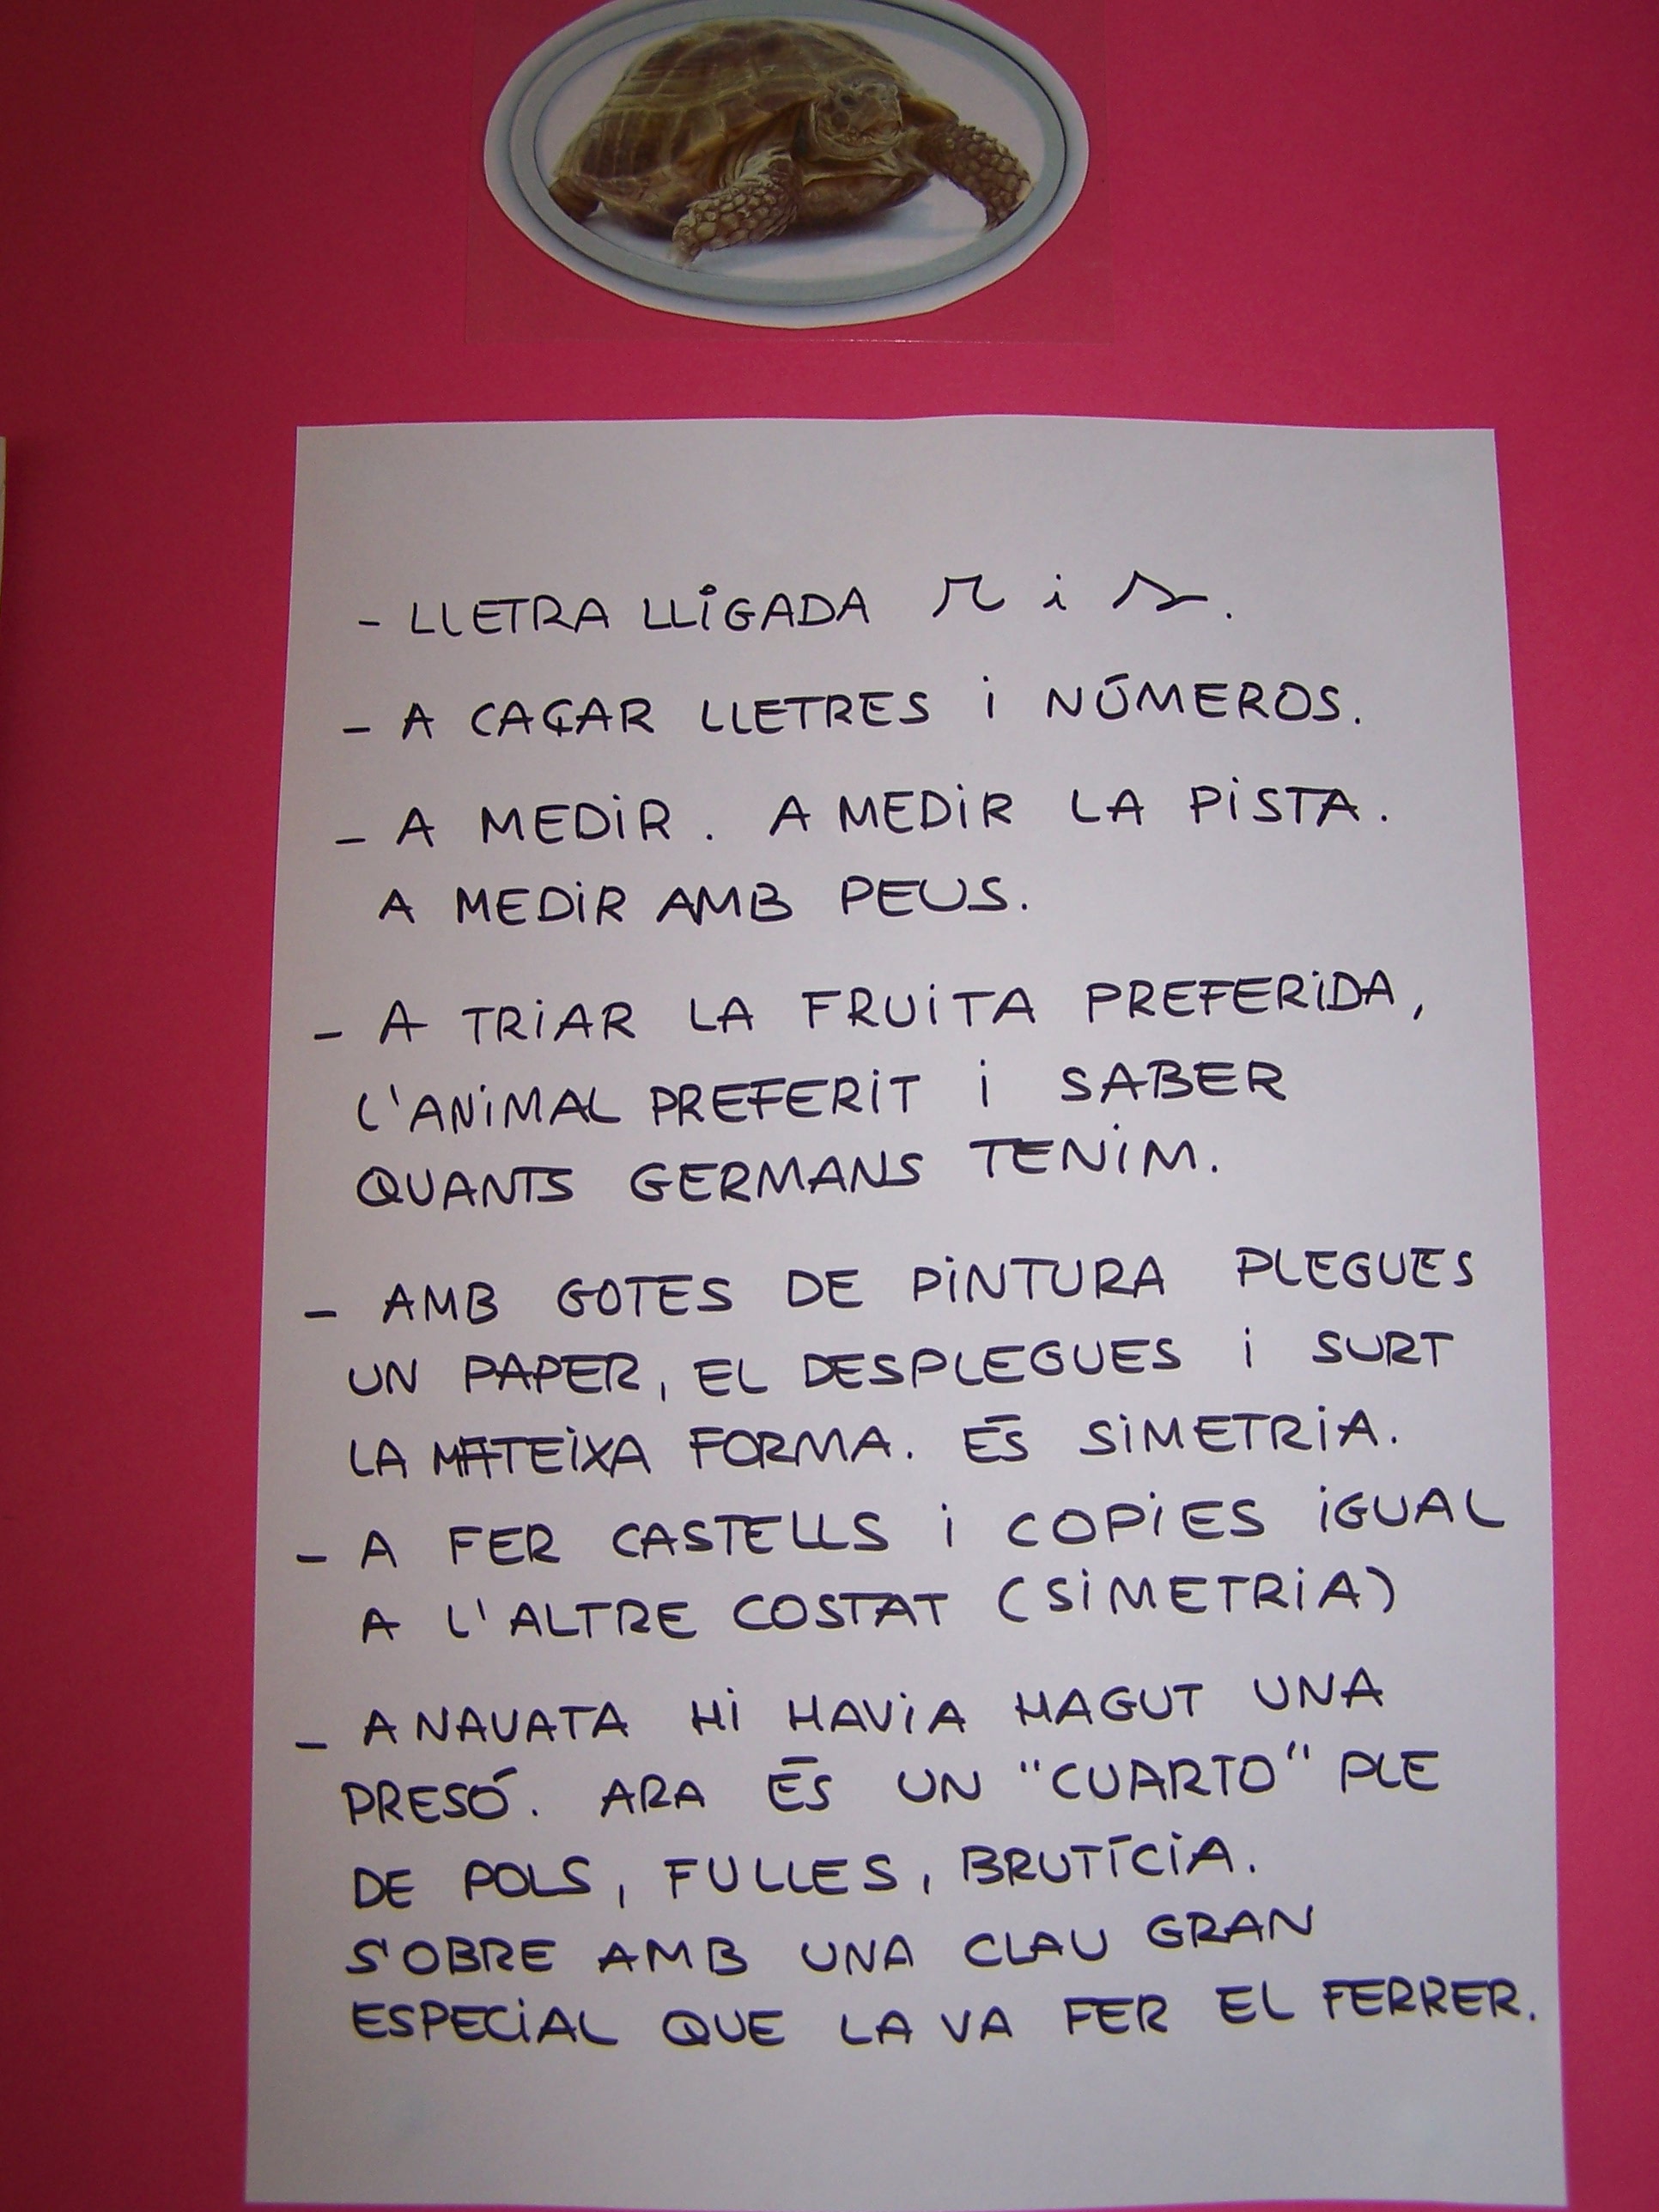 - LLETRA LLIGADA r i s.
- A CAÇAR LLETRES i NÚMEROS.
- A MEDIR. A MEDIR LA PISTA.
A MEDIR AMB PEUS.
- A TRIAR LA FRUITA PREFERIDA,
L'ANIMAL PREFERIT i SABER
QUANTS GERMANS TENIM.
- AMB GOTES DE PINTURA PLEGUES
UN PAPER, EL DESPLEGUES i SURT
LA MATEIXA FORMA. ÉS SIMETRIA.
- A FER CASTELLS i COPIES IGUAL
A L'ALTRE COSTAT (SIMETRIA)
- A NAVATA HI HAVIA HAGUT UNA
PRESÓ. ARA ÉS UN "CUARTO" PLE
DE POLS, FULLES, BRUTÍCIA.
S'OBRE AMB UNA CLAU GRAN
ESPECIAL QUE LA VA FER EL FERRER.